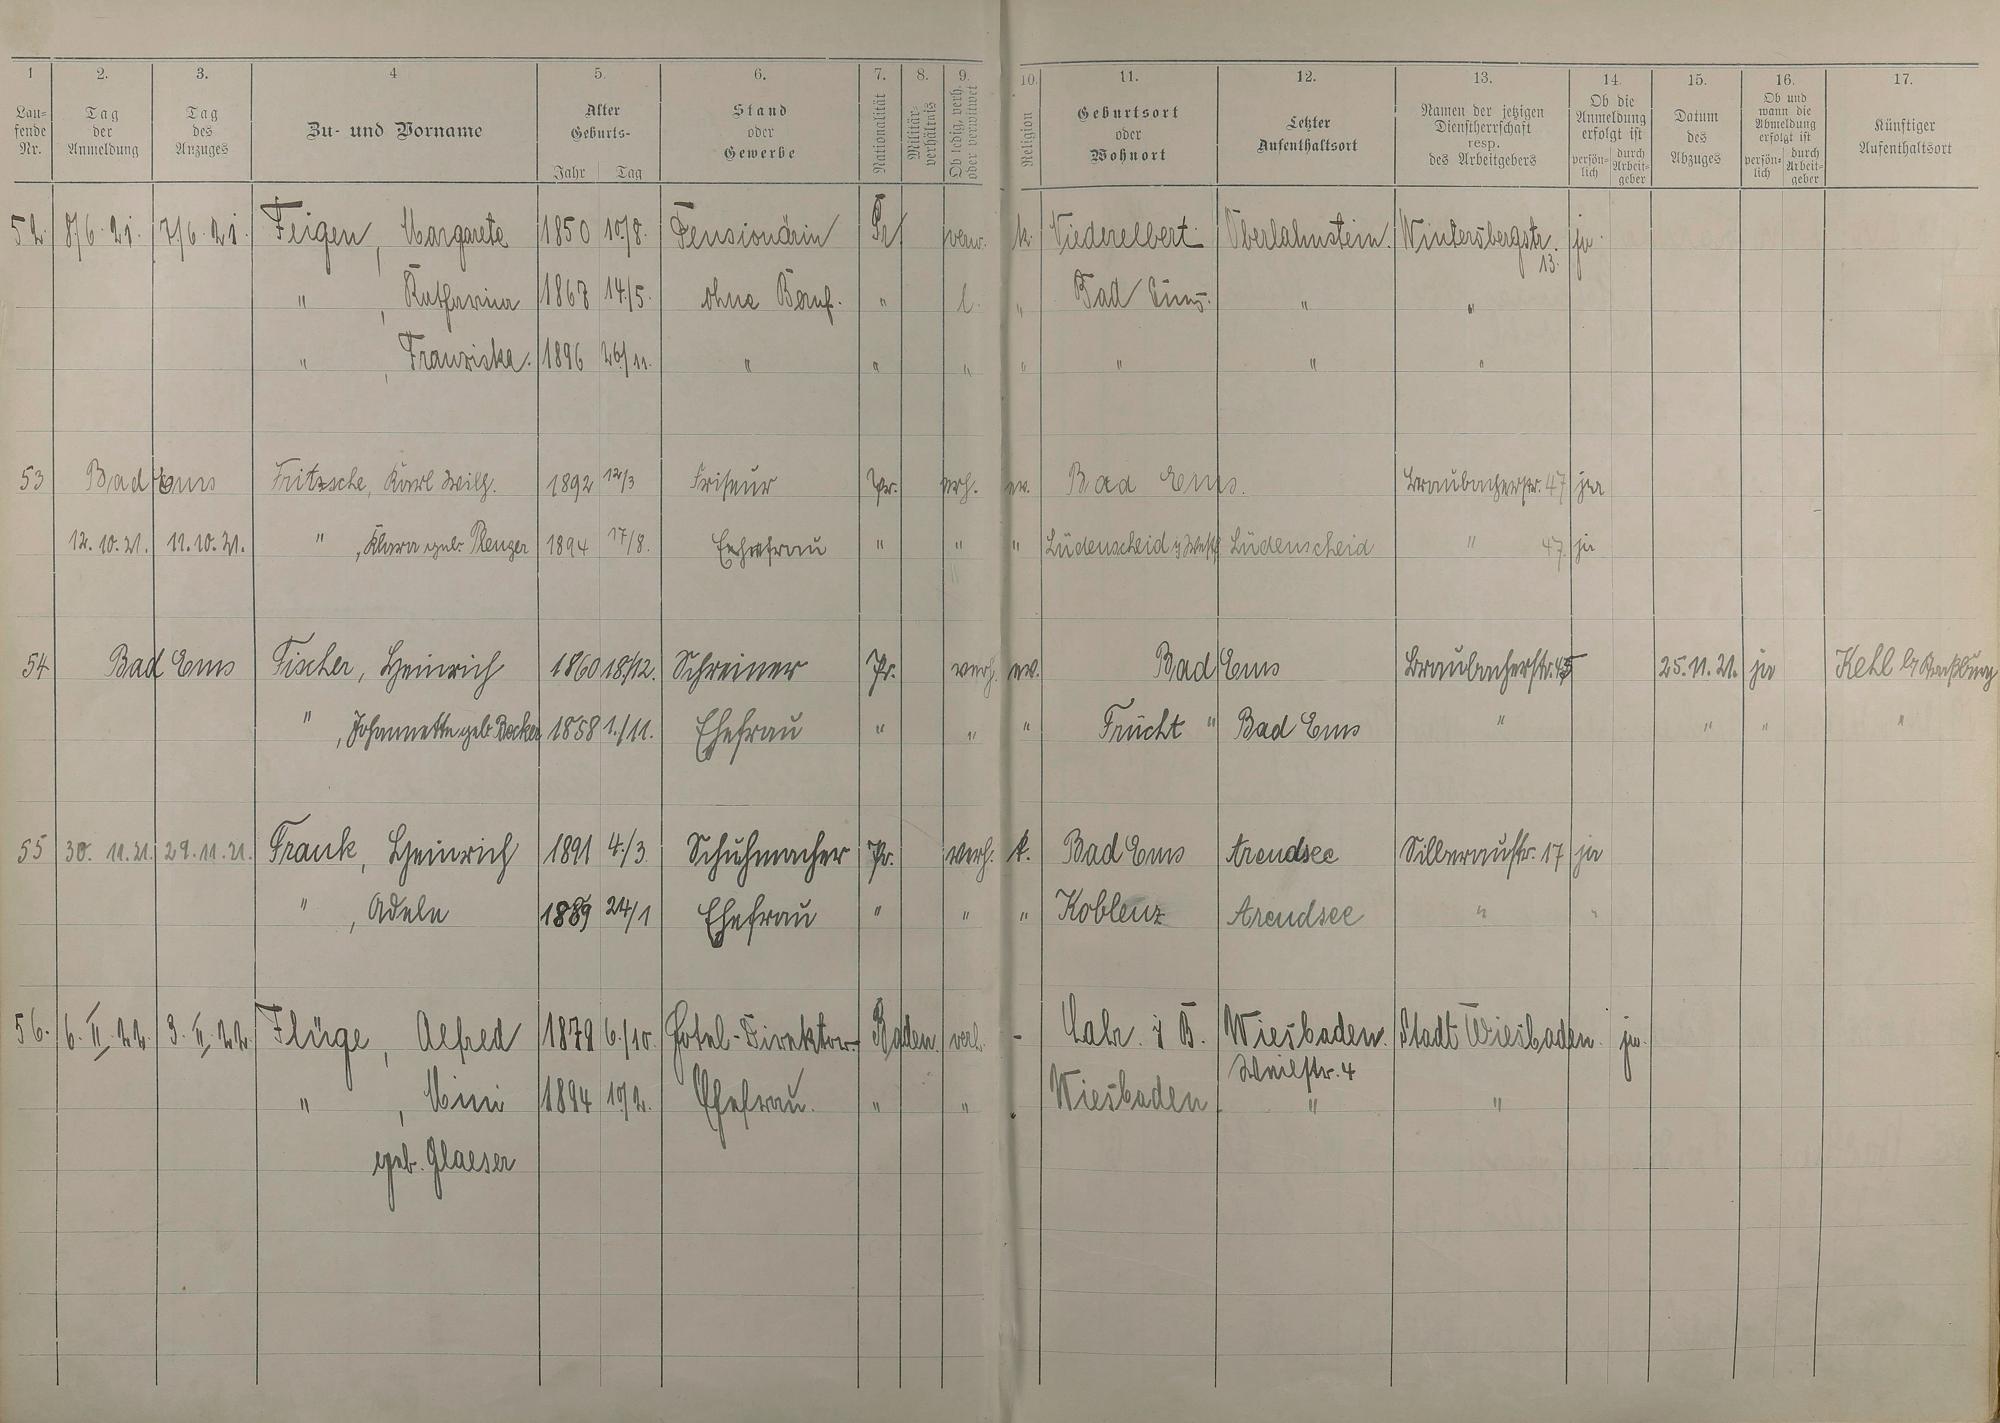 1 2. 3. 4 5. 6. 7. 8. 9. 10. 11. 12. 13. 14. 15. 16. 17.
Laufende Nr. Tag der Anmeldung Tag des Anzuges Zu- und Vorname Alter Geburts- Jahr Tag Stand oder Gewerbe Nationalität Militärverhältnis Ob ledig, verh. oder verwitwet Religion Geburtsort oder Wohnort Letzter Aufenthaltsort Namen der jetzigen Dienstherrschaft resp. des Arbeitgebers Ob die Anmeldung erfolgt ist persönlich durch Arbeitgeber Datum des Abzuges Ob und wann die Abmeldung erfolgt ist persönlich durch Arbeitgeber Künftiger Aufenthaltsort
52. 8/6. 21. 7/6. 21. Feigen, Margarete 1850 10/8. Pensionärin Pr verw. k. Niederelbert Oberlahnstein. Wintersbergstr. 13. ja.
" , Katharina 1867 14./5. ohne Beruf. " l. " Bad Ems. " "
" , Franziska. 1896 26/11. " " " " " " "
53 Bad Ems Fritzsche, Karl Wilh. 1892 12/3 Friseur Pr. verh. ev. Bad Ems. Braubacherstr. 47 ja
12. 10. 21. 11. 10. 21. " , Klara geb. Renger 1894 17/8. Ehefrau " " " Lüdenscheid i/Westf Lüdenscheid " 47. ja
54 Bad Ems Fischer, Heinrich 1860 18/12. Schreiner Pr. verh. ev. Bad Ems Braubacherstr. 45 25. 11. 21. ja Kehl b/ Straßburg
" , Johannette geb. Becker 1858 1./11. Ehefrau " " " Frücht " Bad Ems " " " "
55 30. 11. 21. 29. 11. 21. Frank, Heinrich 1891 4./3 Schuhmacher Pr. verh. k. Bad Ems Arendsee Silberaustr. 17 ja
" , Adele 1889 24/1 Ehefrau " " " Koblenz Arendsee " "
56. 6. II. 22. 3. II. 22. Flüge, Alfred 1879 6./10. Hotel-Direktor Baden. verh. - Lahr. i/ B. Wiesbaden. Stadt Wiesbaden. ja.
Weilstr. 4
" , Mini 1894 10/2. Ehefrau. " " Wiesbaden. " "
geb. Glaeser